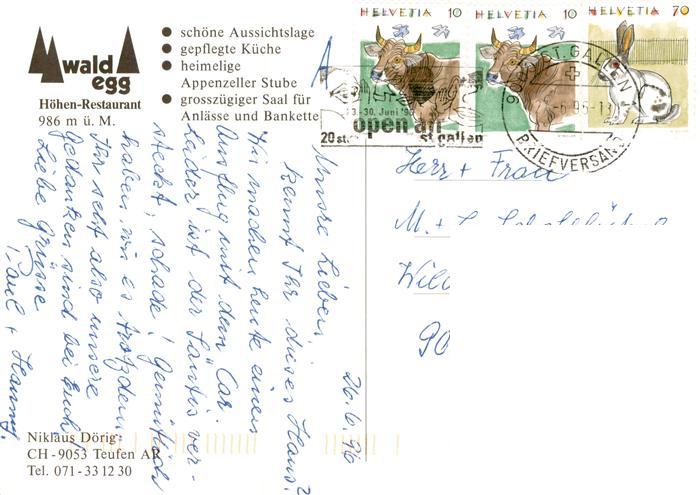 wald
egg
Höhen-Restaurant
986 m ü. M.
● schöne Aussichtslage
● gepflegte Küche
● heimelige
Appenzeller Stube
● grosszügiger Saal für
Anlässe und Bankette
HELVETIA 10
HELVETIA 10
HELVETIA 70
30. Juni
20 st.
open air
st.gallen
ST. GALLEN
BRIEFVERSAND
A
26.6.96
Unsre Lieben,
kennt Ihr dieses Haus?
Wir machen heute einen
Ausflug mit dem Car.
Leider ist der Säntis ver-
steckt, schade! Gemütlich
haben wir es trotzdem
Ihr seht also unsere
Gedanken sind bei Euch!
Liebe Grüsse
Paul + Hanny.
Herr + Frau
M. +
Wil
90
Niklaus Dörig
CH - 9053 Teufen AR
Tel. 071 - 33 12 30